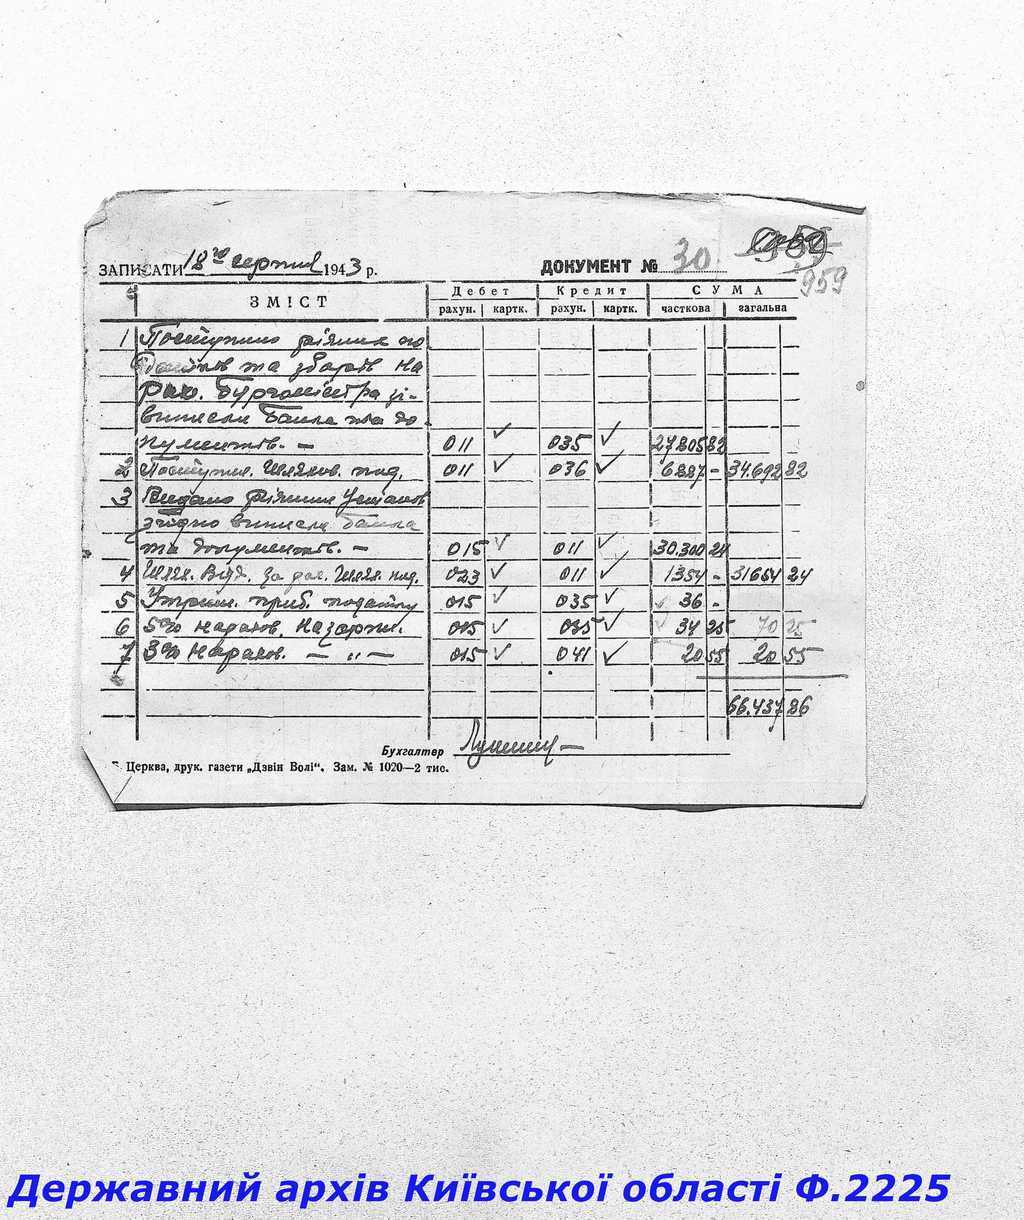 959
ЗАПИСАТИ 18го серпня 1943 р. ДОКУМЕНТ № 30
959
ЗМІСТ Дебет Кредит СУМА
рахун. картк. рахун. картк. часткова загальна
1 Поступило різних по
датків та зборів на
рах. Бургомістра зі-
виписки Банка та до-
кументів. — 011 ✓ 035 ✓ 27805 82
2 Поступил. Шляхов. под. 011 ✓ 036 ✓ 6887 - 34.692 82
3 Видано різним Установ
згідно виписки Банка
та документів. — 015 ✓ 011 ✓ 30.300 24
4 Шлях. Відд. за рах. Шлях. под. 023 ✓ 011 ✓ 1354 - 31654 24
5 Утрим. приб. податку 015 ✓ 035 ✓ 36 -
6 5% нарахов. На зарпл. 015 ✓ 035 ✓ 34 25 70 25
7 3% Нарахов. — „ — 015 ✓ 041 ✓ 20 55 20 55
66.437 86
Бухгалтер
Б. Церква, друк. газети „Дзвін Волі“. Зам. № 1020—2 тис.
Державний архів Київської області Ф.2225